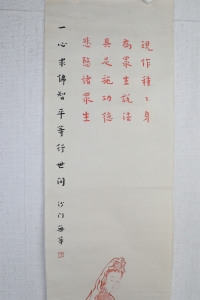 現作種々身
為眾生說法
具足施功德
悲愍諸眾生
一心求佛智平等行世間
沙門